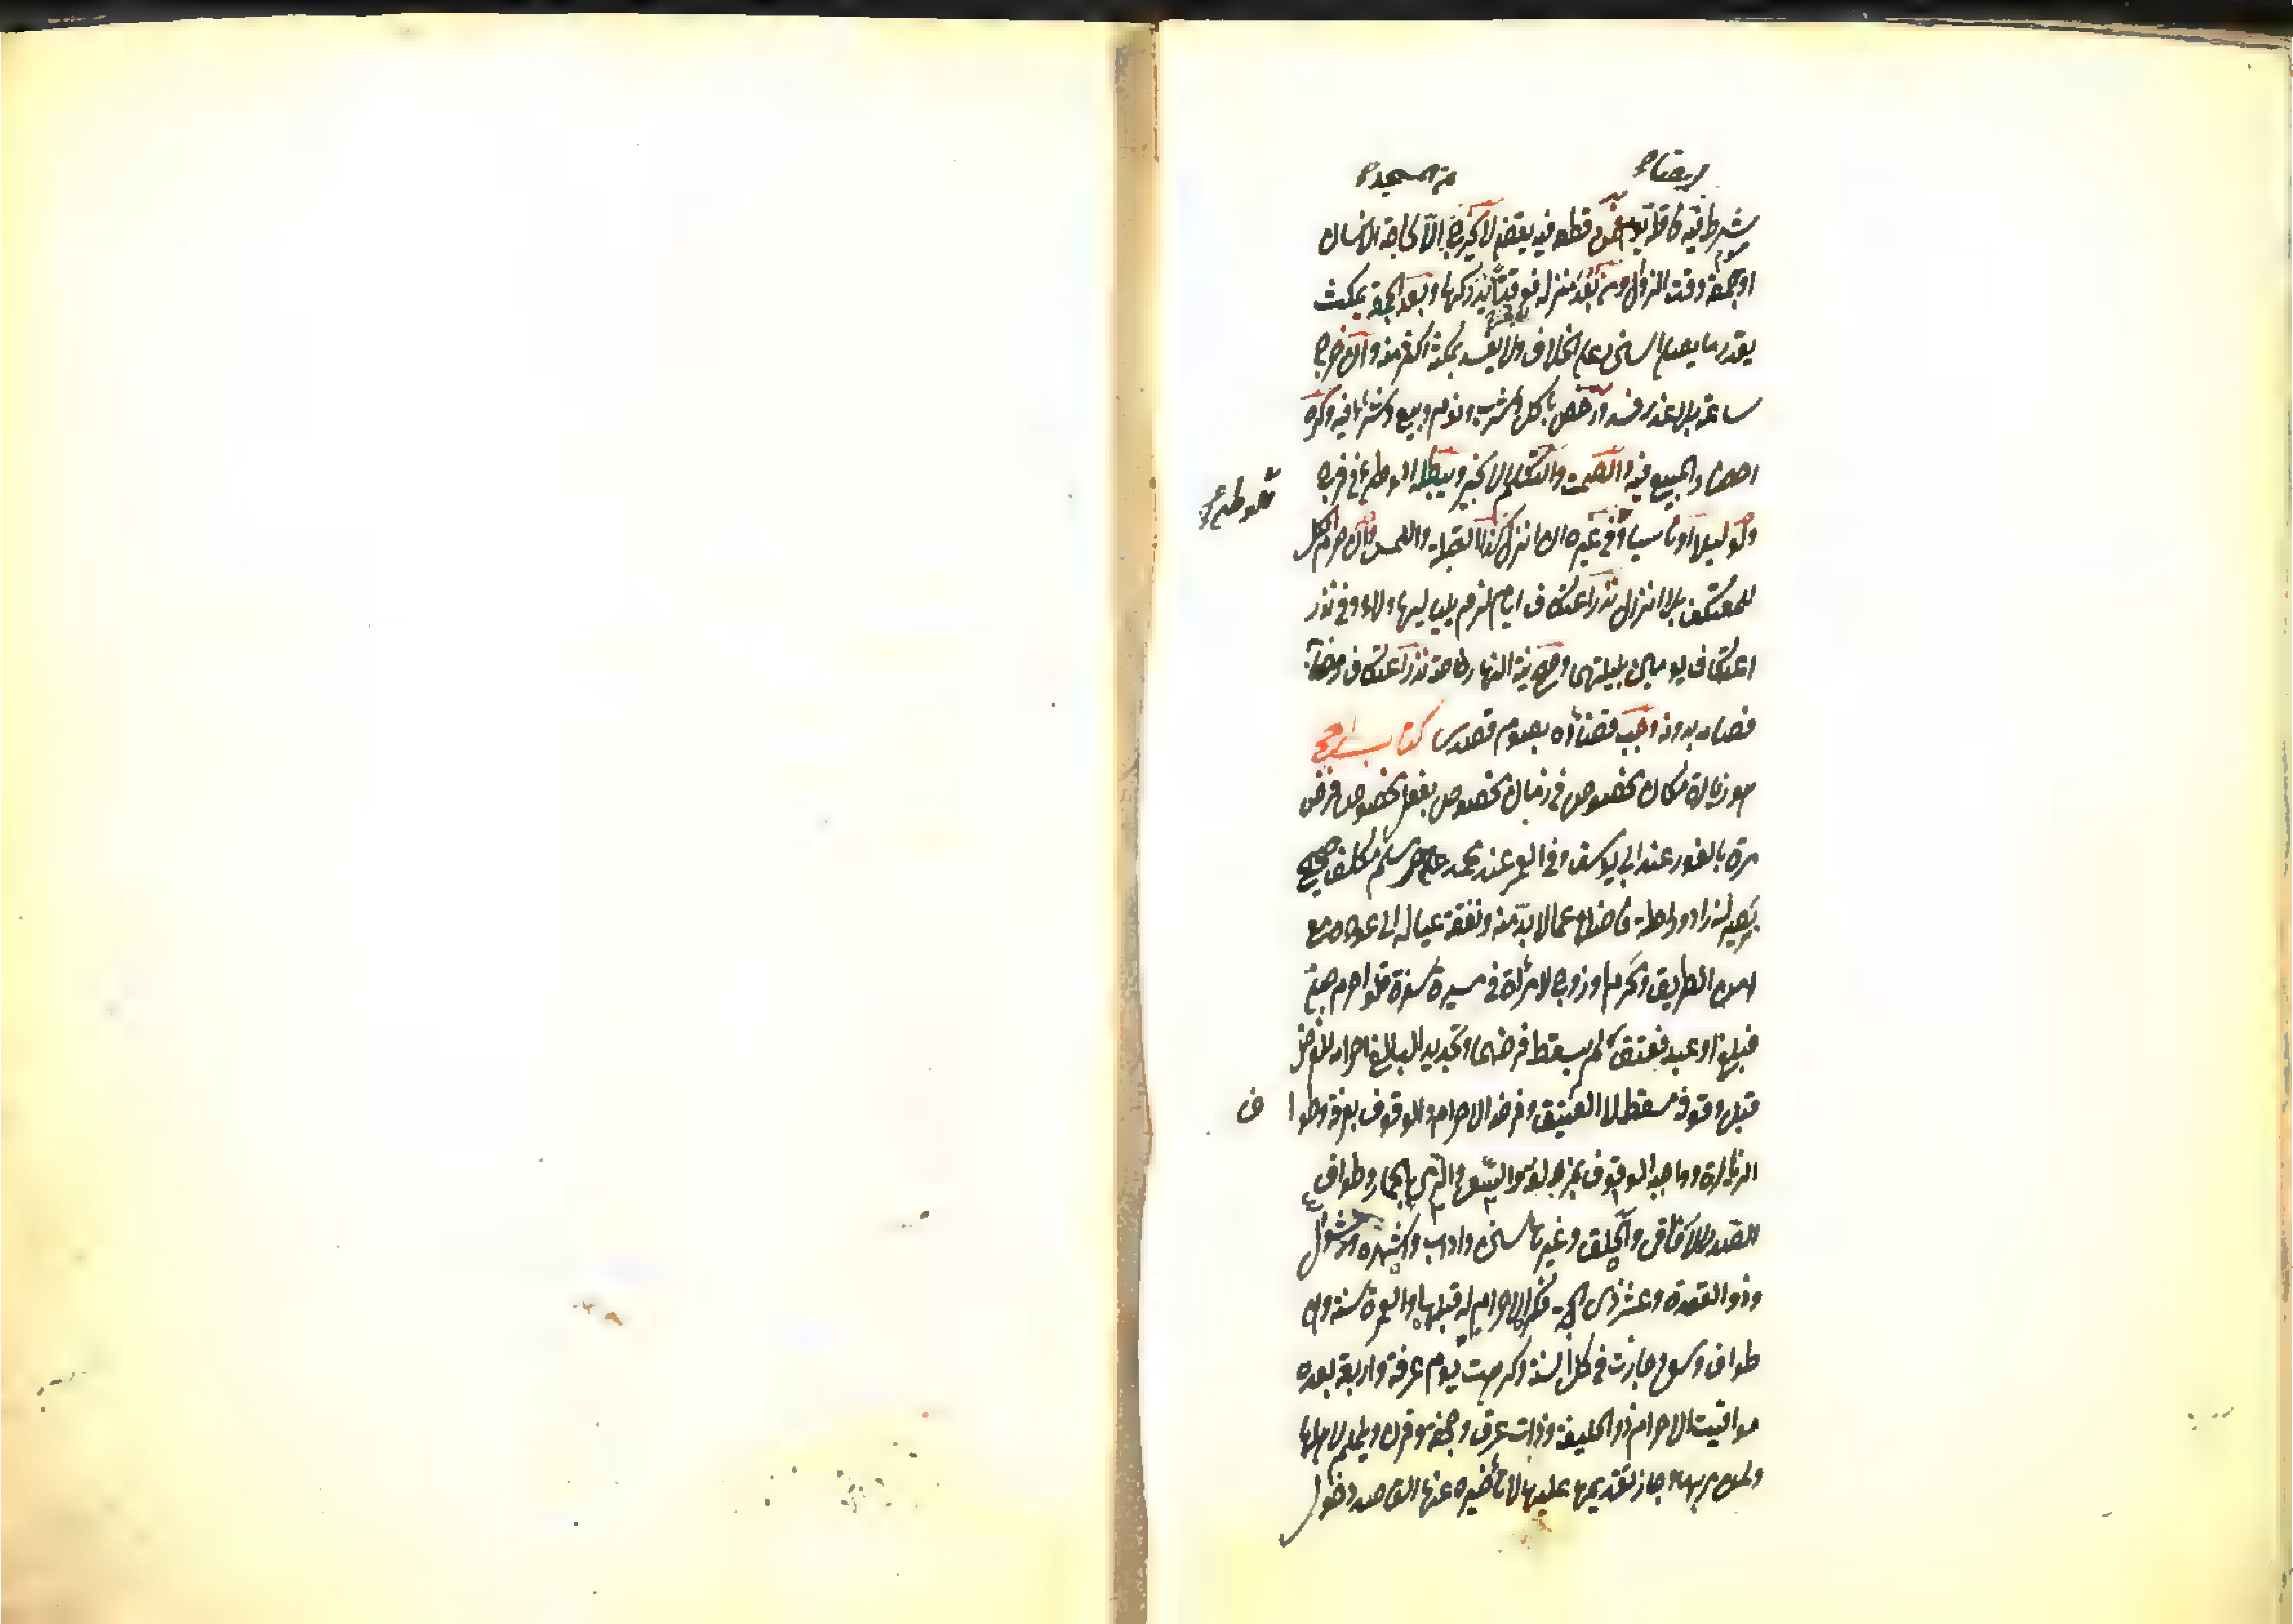 يقضاه
من المسجد
شرط فيه فاقله يوم فمن قطعه فيه يقضى لا يخرج الا لحاجة الانسان
او جمعة وقت الزوال ومن بعد منزله فوقتا يدركها وبعد الجمعة يمكث
بقدر ما يصلي السنن على الخلاف ولا يفسد بمكثه اكثر منه وان خرج
ساعة بلا عذر فسد ورخص باكل وشرب ونوم وبيع وشراء فيه وكره
احضار المبيع فيه والصمت والتكلم الا بخير ويبطله الوطئ في فرج
ولو ليلا او ناسيا وفي غيره ان انزل كذا القبلة واللمس وان حرم الكل
للمعتكف بلا انزال نذر اعتكاف ايام لزم بلياليها ولاء وفي نذر
اعتكاف يومين بليلتهما وصح نية النهار خاصة نذر اعتكاف رمضان
فصام بدونه وجب قضاؤه بصوم قصدي كتاب الحج
هو زيارة مكان مخصوص في زمان مخصوص بفعل مخصوص فرض
مرة بالفور عند ابي يوسف وفي العمر عند محمد على حر مسلم مكلف صحيح
بصير له زاد وراحلة فاضلا عما لا بد منه ونفقة عياله الى عوده مع
امن الطريق ومحرم او زوج لامرأة في مسيرة سفر فلو احرم صبي
فبلغ او عبد فعتق لم يسقط فرضهما وتجديد البالغ احرامه للفرض
قبل وقوفه مسقط لا العتيق وفرضه الاحرام والوقوف بعرفة وطواف
الزيارة وواجبه الوقوف بمزدلفة والسعي والرمي الجمار وطواف
الصدر للآفاقي والحلق وغيرها سنن واداب واشهره شوال
وذو القعدة وعشر ذي الحجة فكره الاحرام له قبلها والعمرة سنة وهي
طواف وسعي جازت في كل السنة وكرهت يوم عرفة واربعة بعده
مواقيت الاحرام ذو الحليفة وذات عرق وجحفة وقرن ويلملم لاهلها
ولمن مر بها وجاز تقديمه عليها لا تأخيره عنها لقاصد دخول